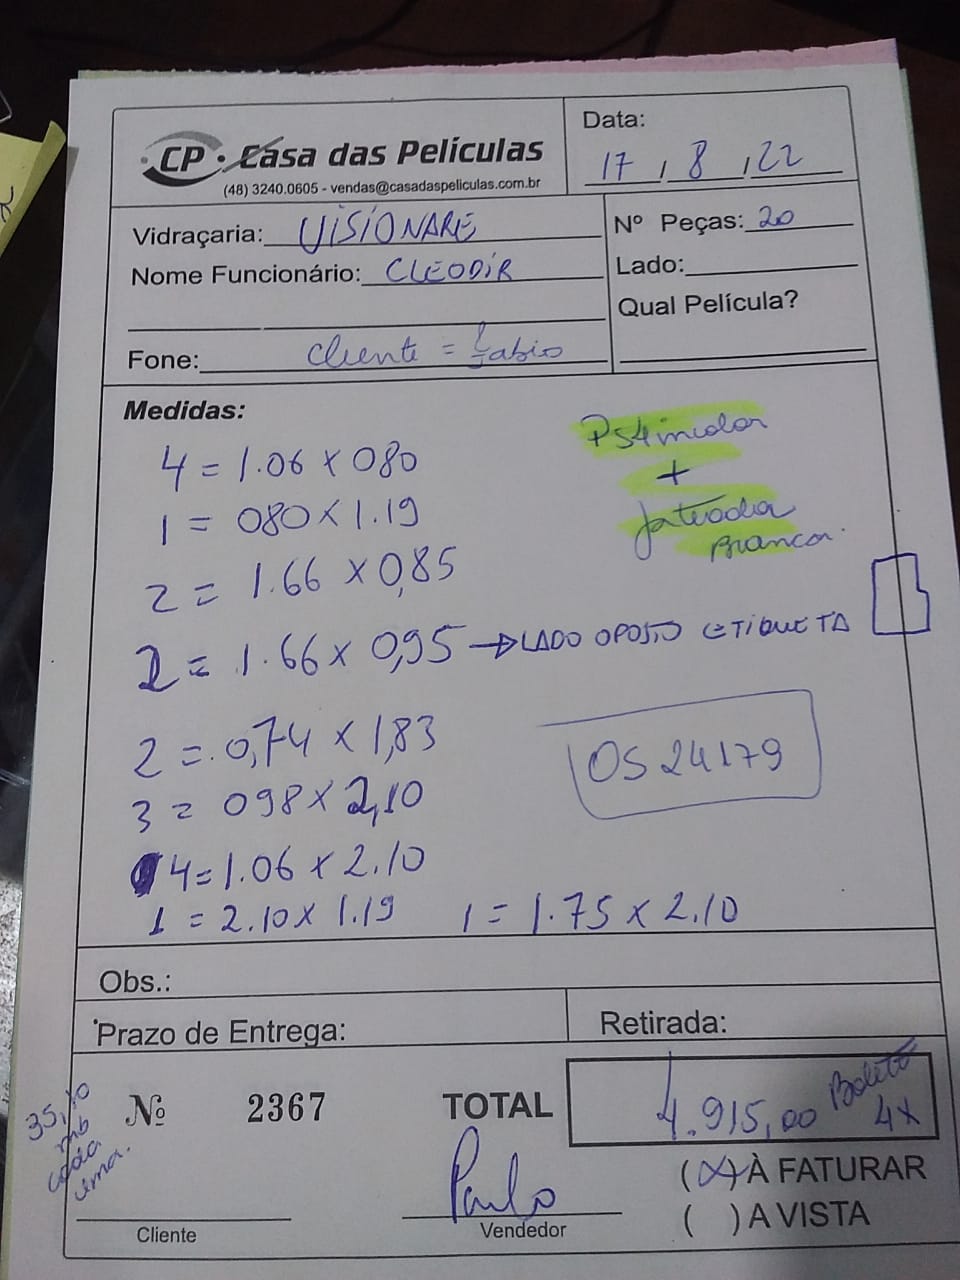 CP · Casa das Películas
(48) 3240.0605 - vendas@casadaspeliculas.com.br
Data: 17 / 8 / 22
Vidraçaria: VISIONARE
Nome Funcionário: CLEODIR
Fone: cliente = Fabio
Nº Peças: 20
Lado:
Qual Película?
Medidas:
PS4 incolor
+
Jateada
Branca.
4 = 1.06 x 080
1 = 080 x 1.19
2 = 1.66 x 0,85
2 = 1.66 x 0,95 → LADO OPOSTO ETIQUETA
2 = 0,74 x 1,83
OS 24179
3 = 098 x 2,10
4 = 1.06 x 2.10
1 = 2.10 x 1.19 1 = 1.75 x 2.10
Obs.:
Prazo de Entrega:
Retirada:
35,10
cada
uma.
Nº 2367
TOTAL 4.915,00 Boleto 4x
(X) À FATURAR
( ) A VISTA
Paulo
Cliente
Vendedor